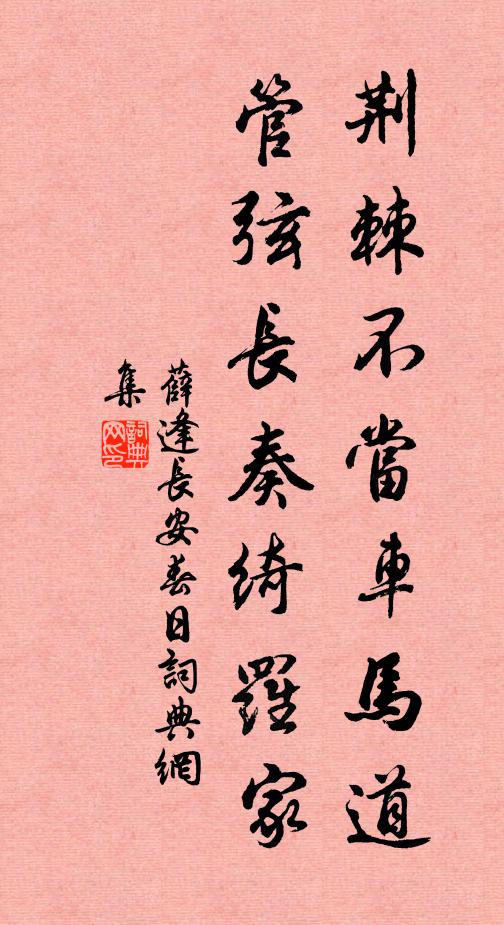 荆棘不當車馬道
管弦長奏綺羅家
薛逢長安春日詞典網
集
詞典
网印